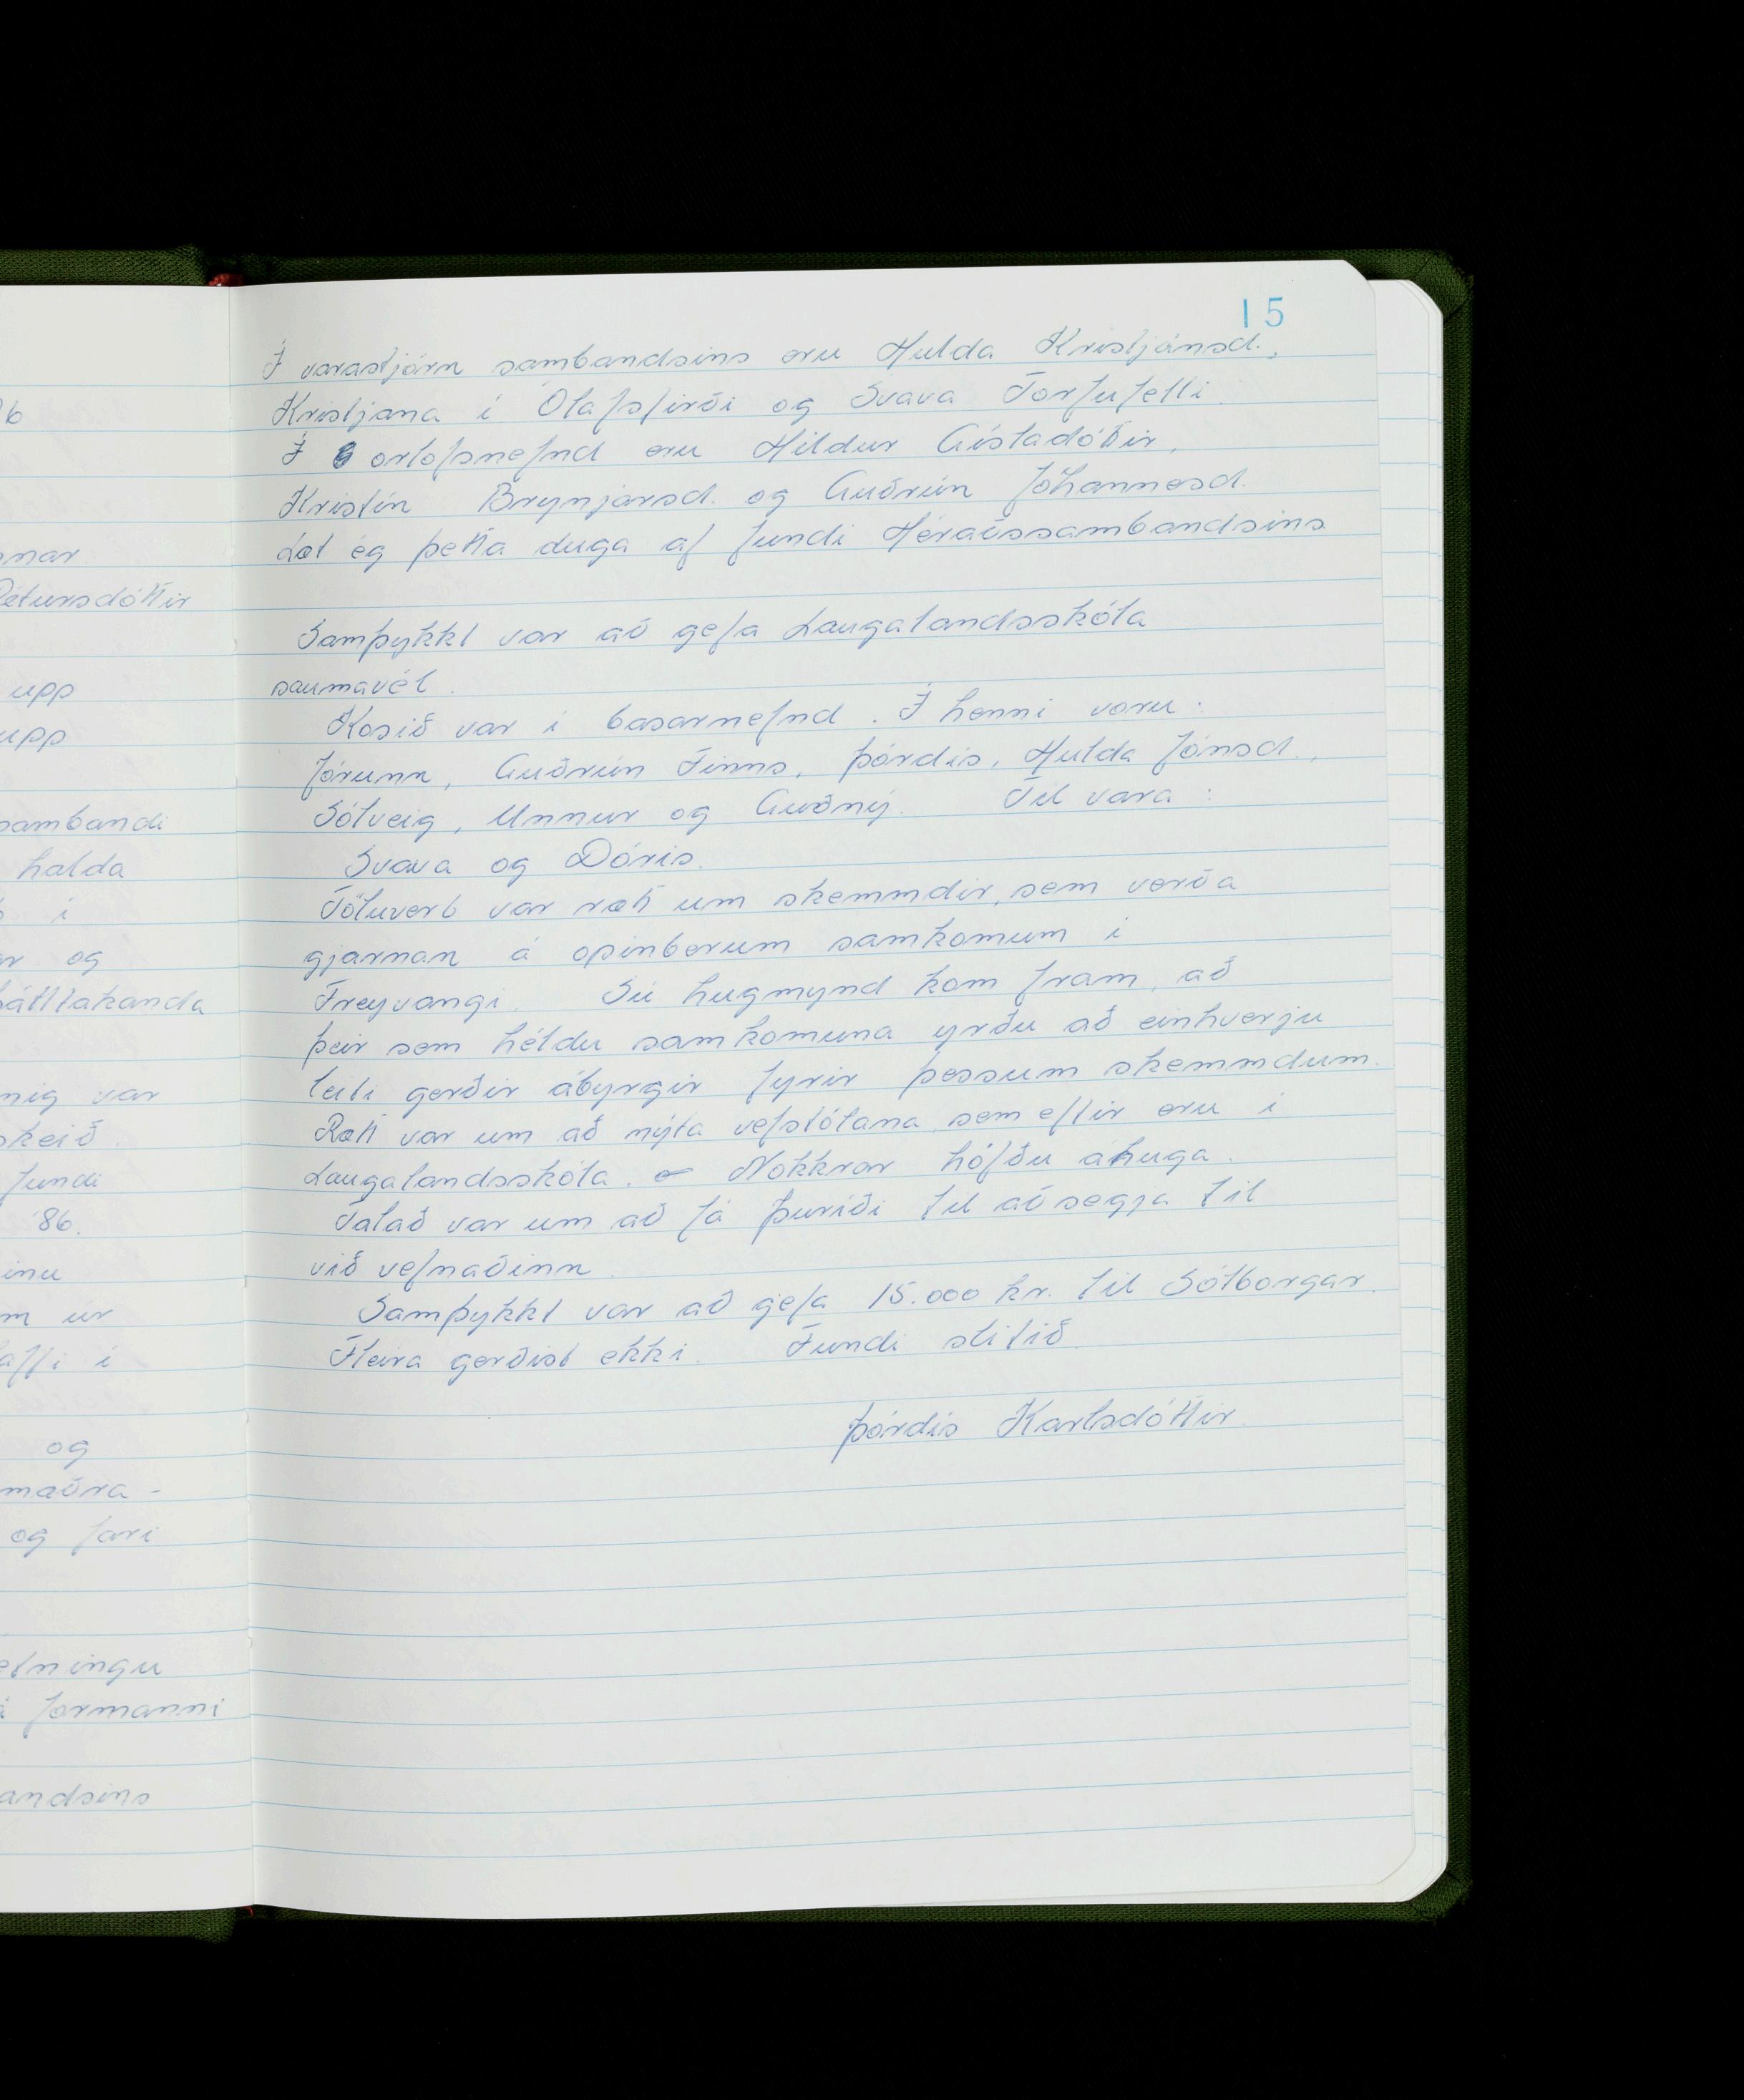 15
Í varastjórn sambandsins eru Hulda Kristjánsd.,
Kristjana í Ólafsfirði og Svava Torfufelli.
Í orlofsnefnd eru Hildur Gísladóttir,
Kristín Brynjarsd. og Guðrún Jóhannesd.
Læt ég þetta duga af fundi Héraðssambandsins
Samþykkt var að gefa Laugalandsskóla
saumavél.
Kosið var í basarnefnd. Í henni voru:
Jórunn, Guðrún Finns, Þórdís, Hulda Jónsd.,
Sólveig, Unnur og Guðný. Til vara:
Svava og Dóris.
Töluvert var rætt um skemmdir, sem verða
gjarnan á opinberum samkomum í
Freyvangi. Sú hugmynd kom fram, að
þeir sem héldu samkomuna yrðu að einhverju
leiti gerðir ábyrgir fyrir þessum skemmdum.
Rætt var um að nýta vefstólana, sem eftir eru í
Laugalandsskóla. Nokkrar höfðu áhuga.
Talað var um að fá Þuríði til að segja til
við vefnaðinn.
Samþykkt var að gefa 15.000 kr. til Sólborgar.
Fleira gerðist ekki. Fundi slitið
Þórdís Karlsdóttir.
nar
Pétursdóttir
upp
upp
sambandi
halda
í
og
þátttakanda
mig var
skeið.
fundi
'86.
inu
m úr
kaffi í
og
maðra-
og fari
etningu
formanni
andsins